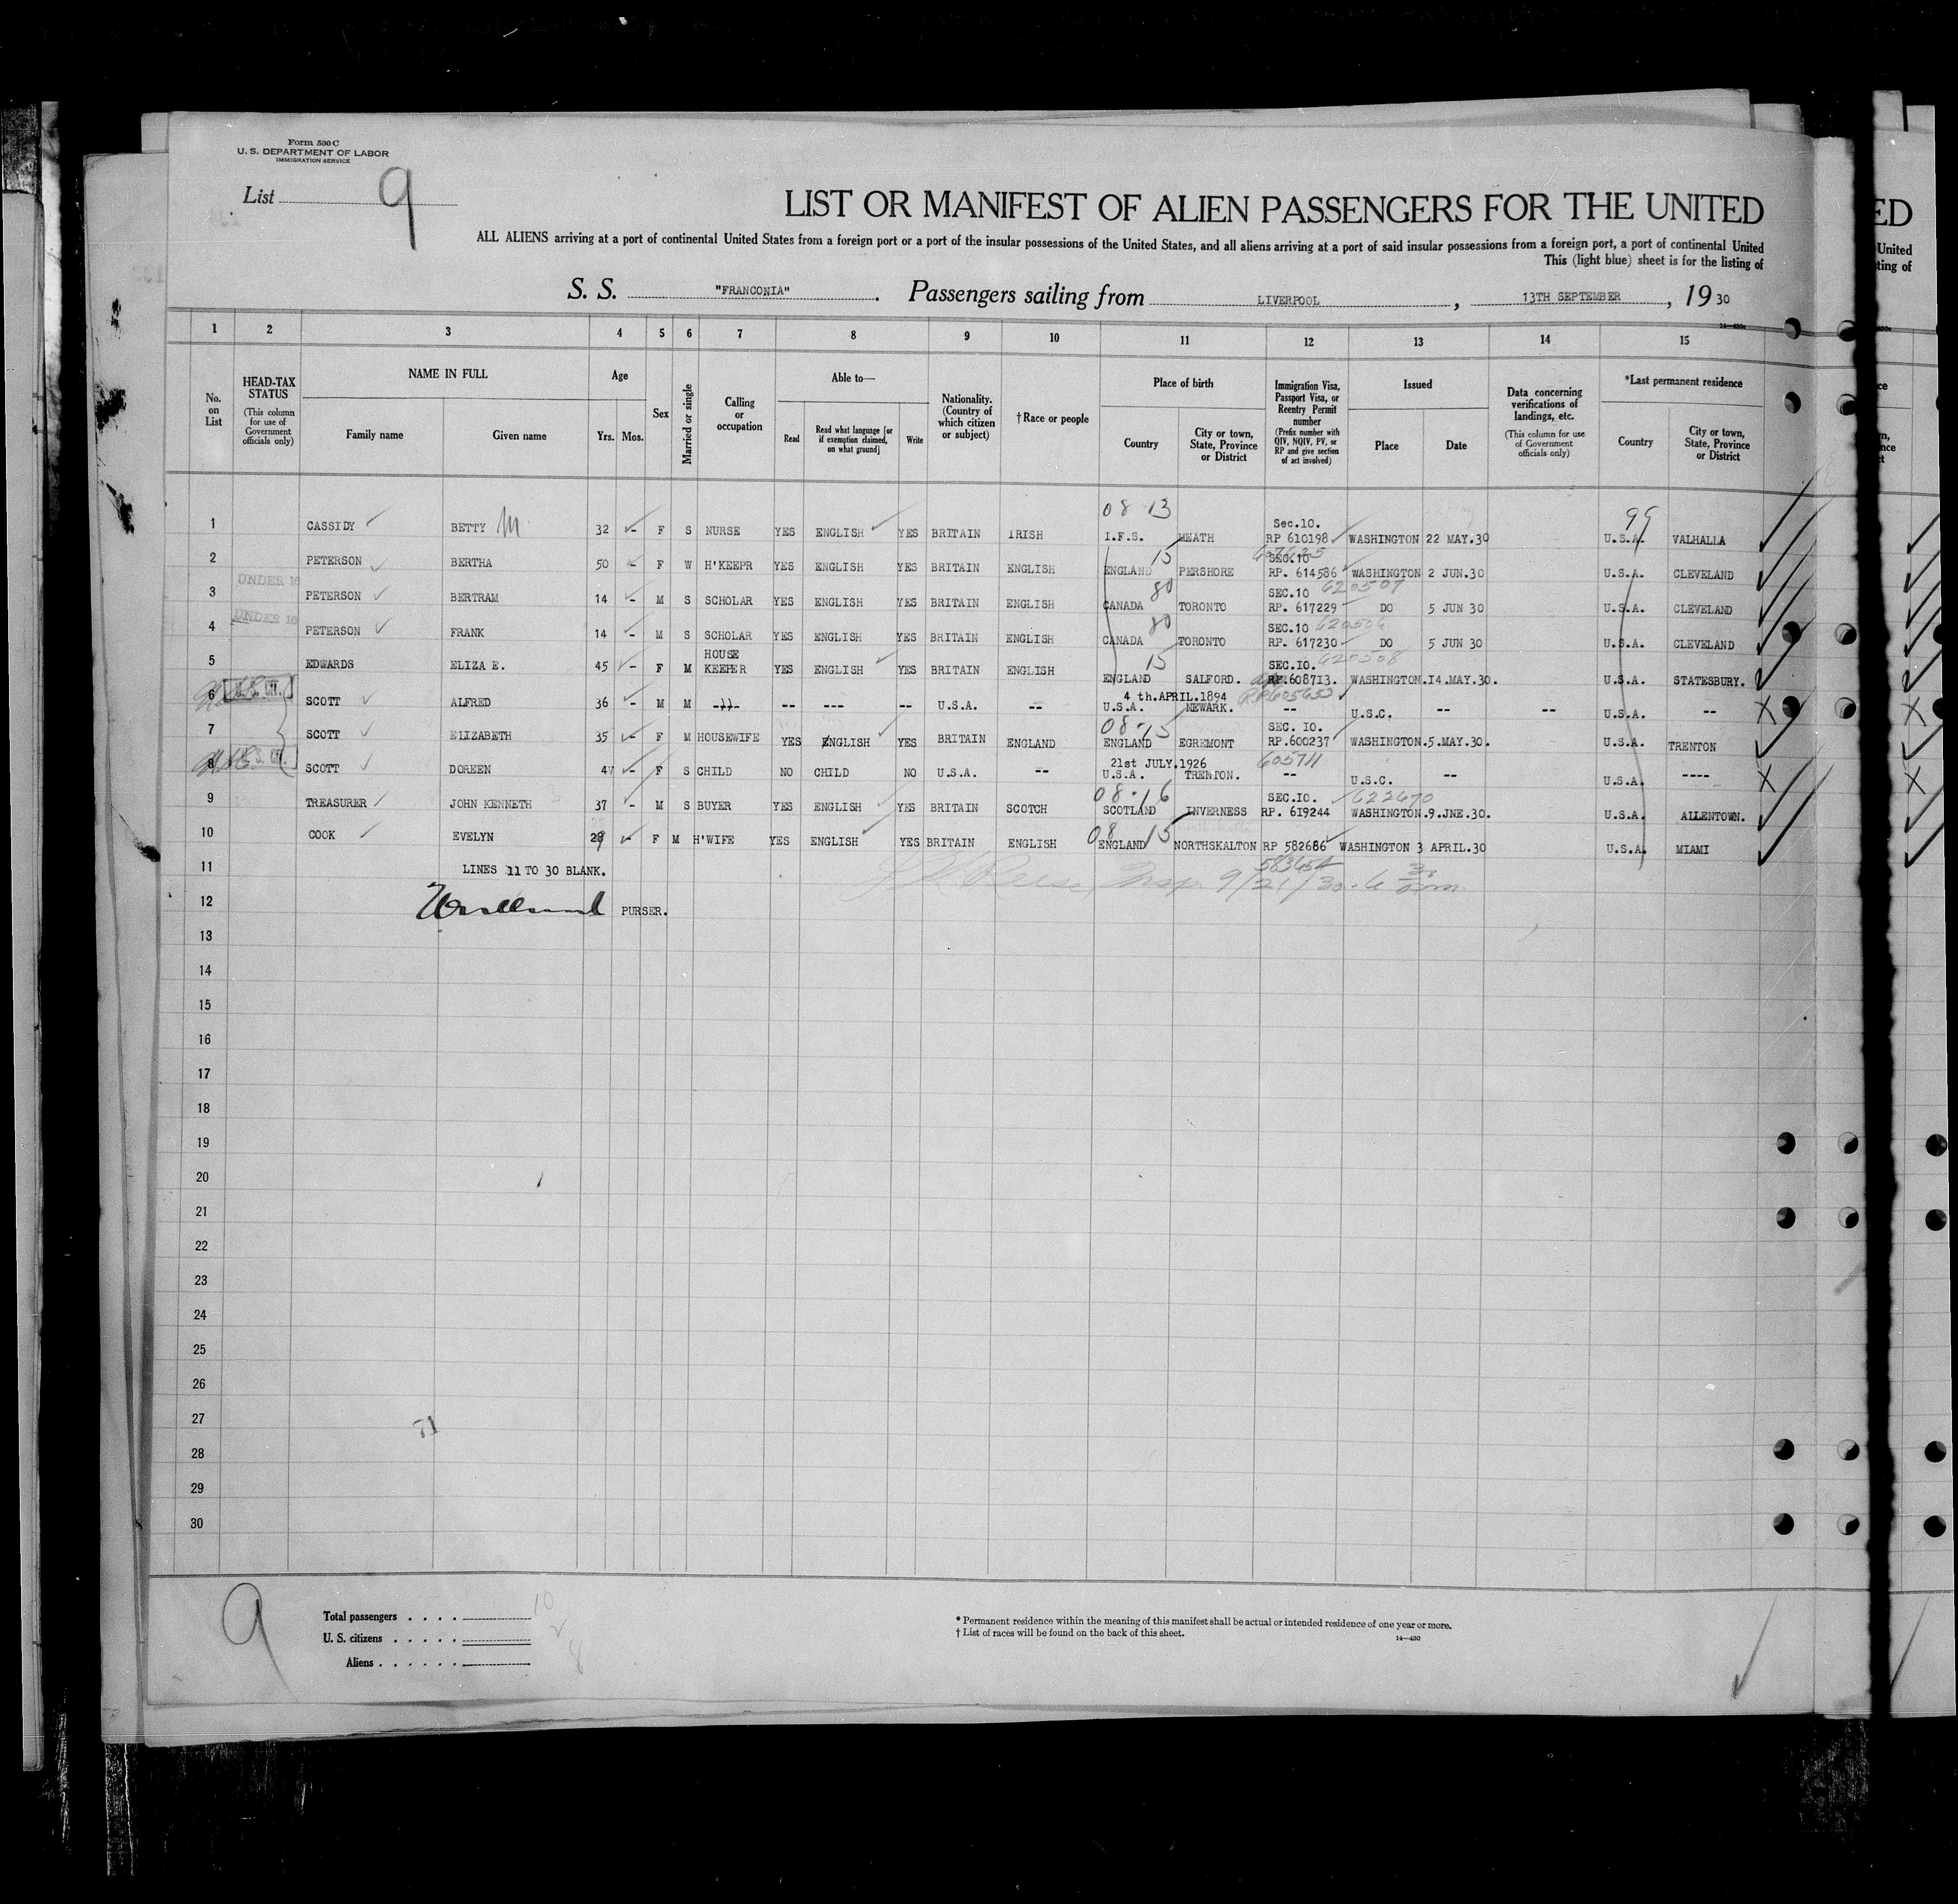 Form 500 C
U. S. DEPARTMENT OF LABOR
IMMIGRATION SERVICE
List 9
LIST OR MANIFEST OF ALIEN PASSENGERS FOR THE UNITED
ALL ALIENS arriving at a port of continental United States from a foreign port or a port of the insular possessions of the United States, and all aliens arriving at a port of said insular possessions from a foreign port, a port of continental United
This (light blue) sheet is for the listing of
S. S. "FRANCONIA". Passengers sailing from LIVERPOOL, 13TH SEPTEMBER, 19 30
1 2 3 4 5 6 7 8 9 10 11 12 13 14 15
No. on List
HEAD-TAX STATUS (This column for use of Government officials only)
NAME IN FULL
Family name Given name
Age
Yrs. Mos.
Sex
Married or single
Calling or occupation
Able to—
Read Read what language [or if exemption claimed, on what ground] Write
Nationality. (Country of which citizen or subject)
†Race or people
Place of birth
Country City or town, State, Province or District
Immigration Visa, Passport Visa, or Reentry Permit number (Prefix number with QIV, NQIV, PV, or RP and give section of act involved)
Issued
Place Date
Data concerning verifications of landings, etc. (This column for use of Government officials only)
*Last permanent residence
Country City or town, State, Province or District
08 13 Sec.10. 99
1 CASSIDY BETTY M 32 - F S NURSE YES ENGLISH YES BRITAIN IRISH I.F.S. MEATH RP 610198 WASHINGTON 22 MAY.30 U.S.A. VALHALLA
15 SEC.10
2 PETERSON BERTHA 50 - F W H'KEEPR YES ENGLISH YES BRITAIN ENGLISH ENGLAND PERSHORE RP. 614586 WASHINGTON 2 JUN.30 U.S.A. CLEVELAND
UNDER 16 80 SEC.10 620507
3 PETERSON BERTRAM 14 - M S SCHOLAR YES ENGLISH YES BRITAIN ENGLISH CANADA TORONTO RP. 617229 DO 5 JUN 30 U.S.A. CLEVELAND
UNDER 16 80 SEC.10 620506
4 PETERSON FRANK 14 - M S SCHOLAR YES ENGLISH YES BRITAIN ENGLISH CANADA TORONTO RP. 617230 DO 5 JUN 30 U.S.A. CLEVELAND
15 SEC.IO. 620508
5 EDWARDS ELIZA E. 45 - F M HOUSE KEEPER YES ENGLISH YES BRITAIN ENGLISH ENGLAND SALFORD. RP.608713. WASHINGTON.I4.MAY.30. U.S.A. STATESBURY.
U.S. CIT. 4 th.APRIL.1894 RP605653
6 SCOTT ALFRED 36 - M M --- -- --- -- U.S.A. -- U.S.A. NEWARK. -- U.S.C. -- -- U.S.A. --
08-15 SEC. IO.
7 SCOTT ELIZABETH 35 - F M HOUSEWIFE YES ENGLISH YES BRITAIN ENGLAND ENGLAND EGREMONT RP.600237 WASHINGTON.5.MAY.30. U.S.A. TRENTON
U.S. CIT. 21st JULY.1926 605711
8 SCOTT DOREEN 4 - F S CHILD NO CHILD NO U.S.A. -- U.S.A. TRENTON. -- U.S.C. -- U.S.A. ----
08-16 SEC.IO. 622670
9 TREASURER JOHN KENNETH 37 - M S BUYER YES ENGLISH YES BRITAIN SCOTCH SCOTLAND INVERNESS RP. 619244 WASHINGTON.9.JNE.30. U.S.A. ALLENTOWN.
08 15
10 COOK EVELYN 28 - F M H'WIFE YES ENGLISH YES BRITAIN ENGLISH ENGLAND NORTHSKALTON RP 582686 WASHINGTON 3 APRIL.30 U.S.A. MIAMI
11 LINES 11 TO 30 BLANK. Insp. 9/21/30
12 PURSER.
13
14
15
16
17
18
19
20
21
22
23
24
25
26
27
71
28
29
30
9
Total passengers . . . . 10
U. S. citizens . . . . . 2
Aliens . . . . . . 8
* Permanent residence within the meaning of this manifest shall be actual or intended residence of one year or more.
† List of races will be found on the back of this sheet.
14—430